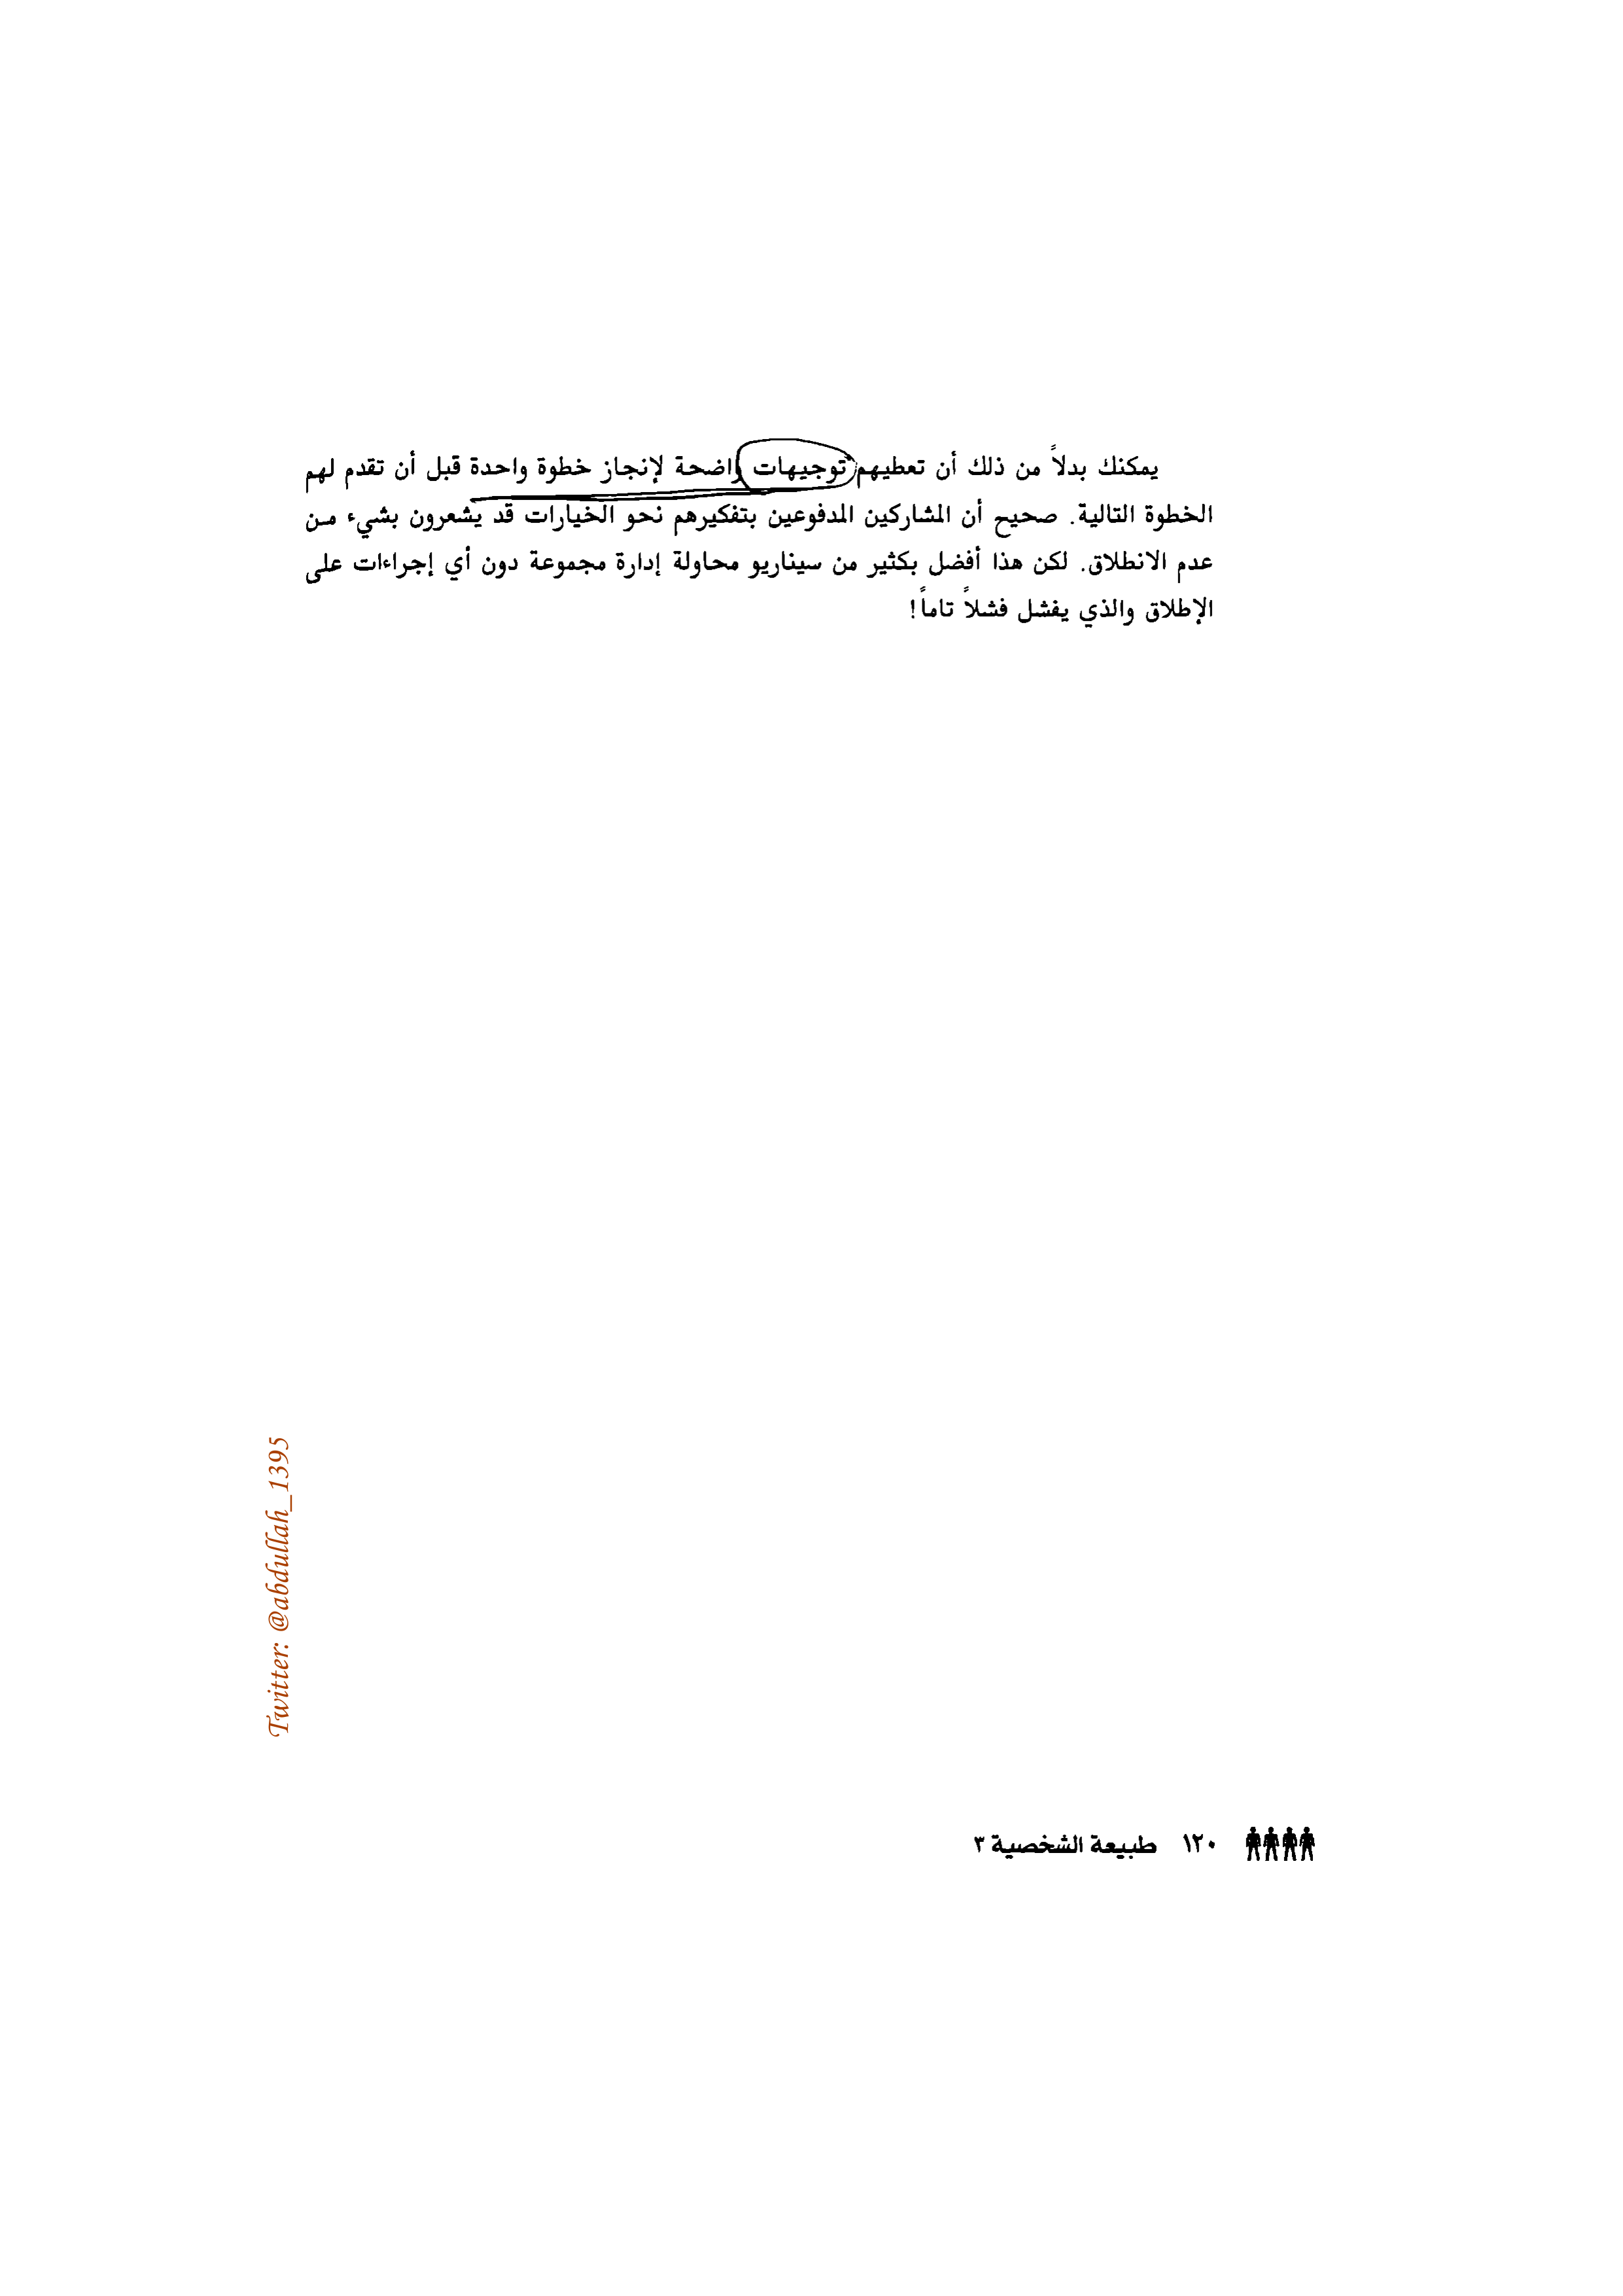 يمكنك بدلاً من ذلك أن تعطيهم توجيهات واضحة لإنجاز خطوة واحدة قبل أن تقدم لهم
الخطوة التالية. صحيح أن المشاركين المدفوعين بتفكيرهم نحو الخيارات قد يشعرون بشيء من
عدم الانطلاق. لكن هذا أفضل بكثير من سيناريو محاولة إدارة مجموعة دون أي إجراءات على
الإطلاق والذي يفشل فشلاً تاماً!
Twitter: @abdullah_1395
١٢٠ طبيعة الشخصية ٣